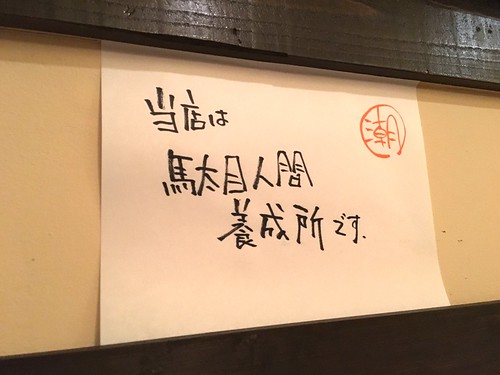 当店は
潮
駄目人間
養成所です、